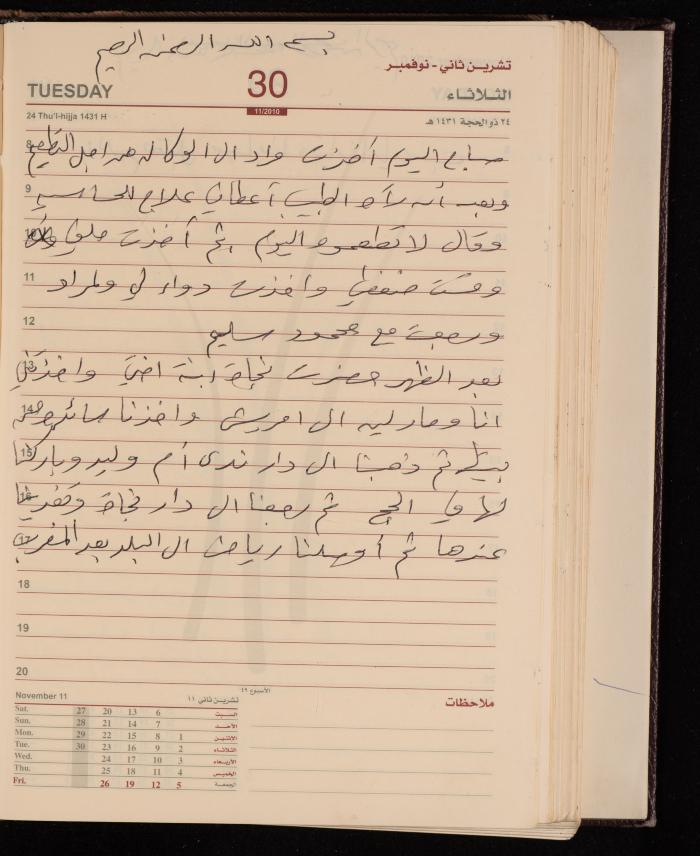 بسم الله الرحمن الرحيم
تشرين ثاني - نوفمبر
TUESDAY 30 الثلاثاء
11/2010
24 Thu'l-hijja 1431 H ٢٤ ذو الحجة ١٤٣١ هـ
8 صباح اليوم أخذت واد ال الوكاله من اجل التطعيم
9 وبعد أن رآه الطبيب أعطاني علاج للحساسيه
10 وقال لا تطعموه اليوم ثم أخذت ملفي
11 وقست ضغطي واخذت دواء لي ولمراد
12 ورجعت مع محمود سليم
13 بعد الظهر حضرت نجاة ابنة اختي واخذتني
14 انا ومارليه ال امريش واخذنا
15 ثم ذهبنا ال دار ندى أم وليد وباركنا
16 لها في الحج ثم رجعنا ال دار نجاة
17 عندها ثم أوصلنا رياض ال البلد بعد المغرب
18
19
20
November 11 تشرين ثاني ١١
الأسبوع ٤٩
ملاحظات
Sat. 27 20 13 6 السبت
Sun. 28 21 14 7 الأحد
Mon. 29 22 15 8 1 الاثنين
Tue. 30 23 16 9 2 الثلاثاء
Wed. 24 17 10 3 الأربعاء
Thu. 25 18 11 4 الخميس
Fri. 26 19 12 5 الجمعة